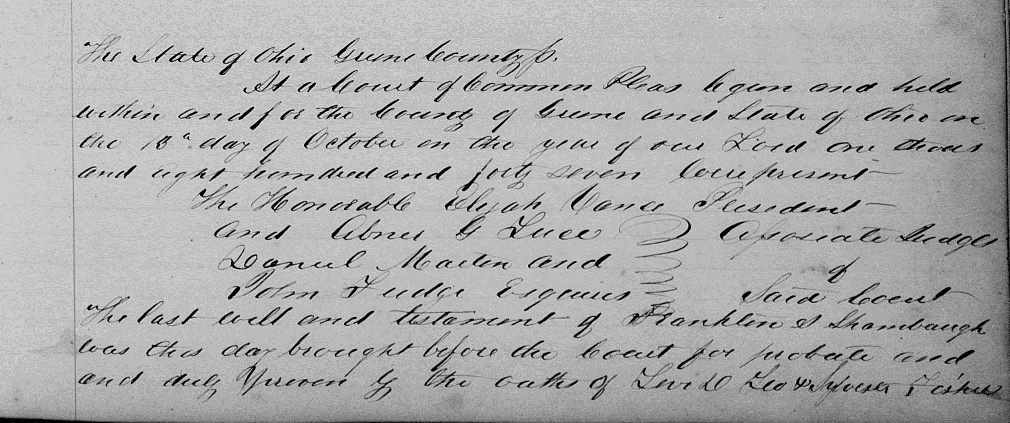 The State of Ohio Greene County ss.
At a Court of Common Pleas begun and held
within and for the County of Greene and State of Ohio on
the 13th day of October in the year of our Lord one thous
and eight hundred and forty seven were present
The Honorable Elijah Vance President
and Abner G Luce Associate Judges
Daniel Martin and of
John Fudge Esquires Said Court
The last will and testament of Franklin S Shambaugh
was this day brought before the Court for probate and
and duly proven by the oaths of Levi D & Sylvester Fisher